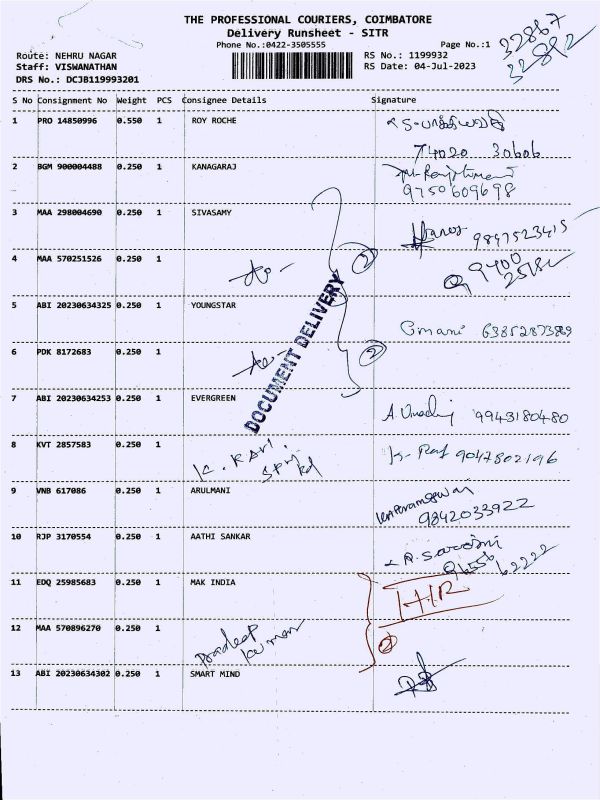 THE PROFESSIONAL COURIERS, COIMBATORE
Delivery Runsheet - SITR
Phone No.:0422-3505555 Page No.:1
32867
32892
Route: NEHRU NAGAR RS No.: 1199932
Staff: VISWANATHAN RS Date: 04-Jul-2023
DRS No.: DCJB119993201
S No Consignment No Weight PCS Consignee Details Signature
1 PRO 14850996 0.550 1 ROY ROCHE
74020 30606
2 BGM 900004488 0.250 1 KANAGARAJ
9750609698
3 MAA 298004690 0.250 1 SIVASAMY
9897523415
4 MAA 570251526 0.250 1 2
9400
5 ABI 20230634325 0.250 1 YOUNGSTAR
DOCUMENT DELIVERY
6 PDK 8172683 0.250 1 2
7 ABI 20230634253 0.250 1 EVERGREEN
9943180480
8 KVT 2857583 0.250 1 K. RAVI. 9047802196
9 VNB 617086 0.250 1 ARULMANI
9842033922
10 RJP 3170554 0.250 1 AATHI SANKAR
96556 62222
11 EDQ 25985683 0.250 1 MAK INDIA
12 MAA 570896270 0.250 1 Pradeep 2
kumar
13 ABI 20230634302 0.250 1 SMART MIND